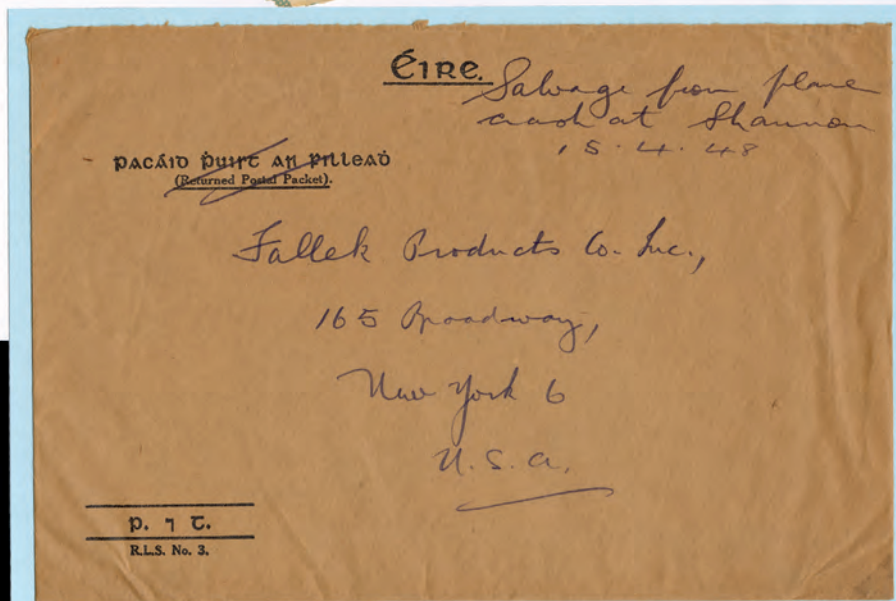 Éire.
Salvage from plane
crash at Shannon
15.4.48
Pacáid Ṗuirt ar Pilleaḋ
(Returned Postal Packet).
Fallek Products Co. Inc.,
165 Broadway,
New York 6
U.S.A.
P. ⁊ T.
R.L.S. No. 3.